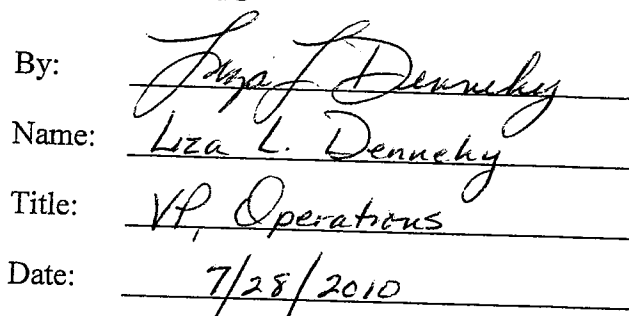 By: Liza L. Dennehy
Name: Liza L. Dennehy
Title: VP, Operations
Date: 7/28/2010